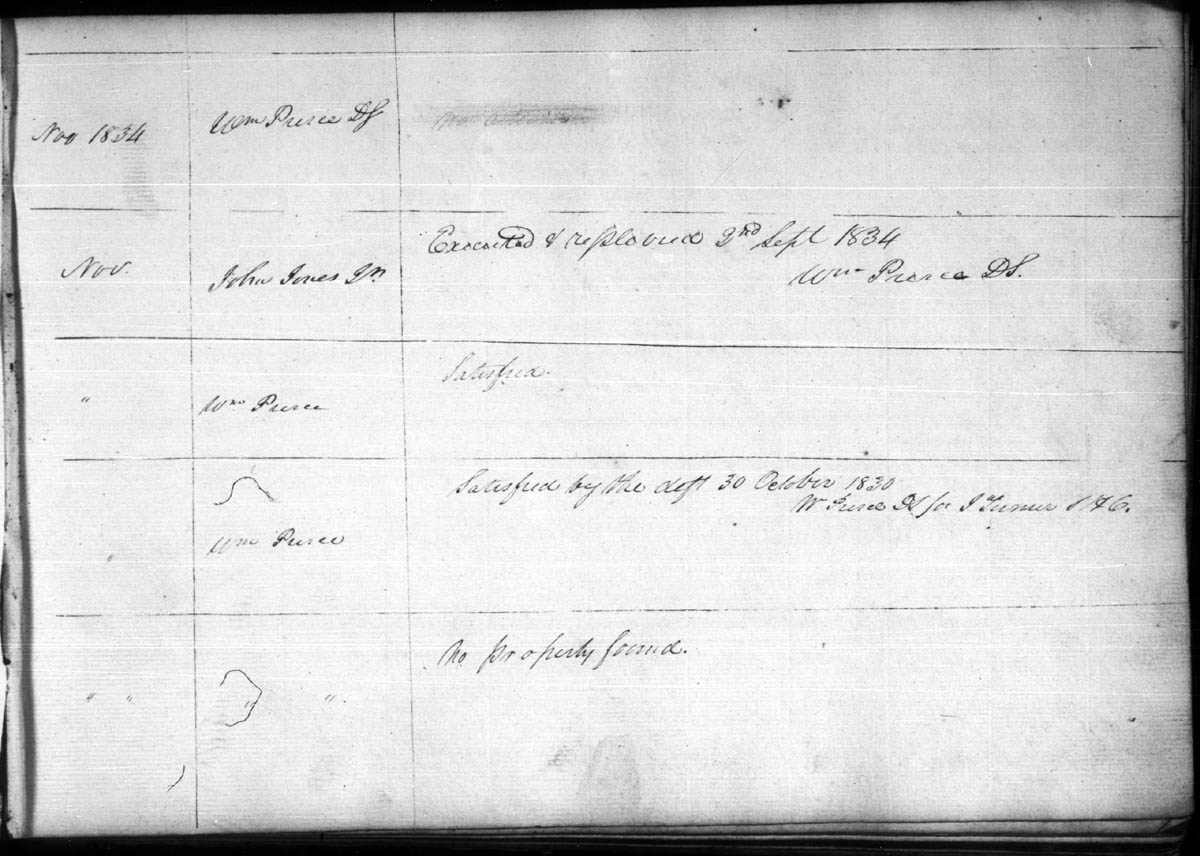 Nov 1834
Wm Pierce DS
Nov.
John Jones Jr.
Executed & replevied 2nd Sept 1834
Wm Pierce DS.
"
Wm Pierce
Satisfied.
Wm Pierce
Satisfied by the deft 30 October 1830
W Pierce DS for J Turner
" "
" "
No property found.